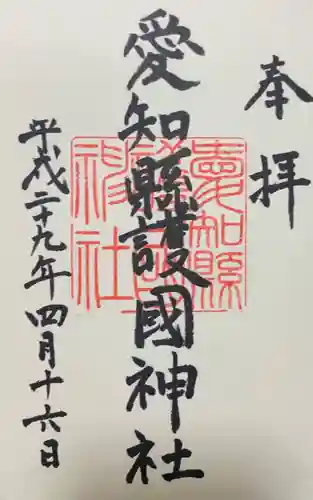 奉拝
愛知縣護國神社
平成二十九年四月十六日
愛知縣
護國
神社